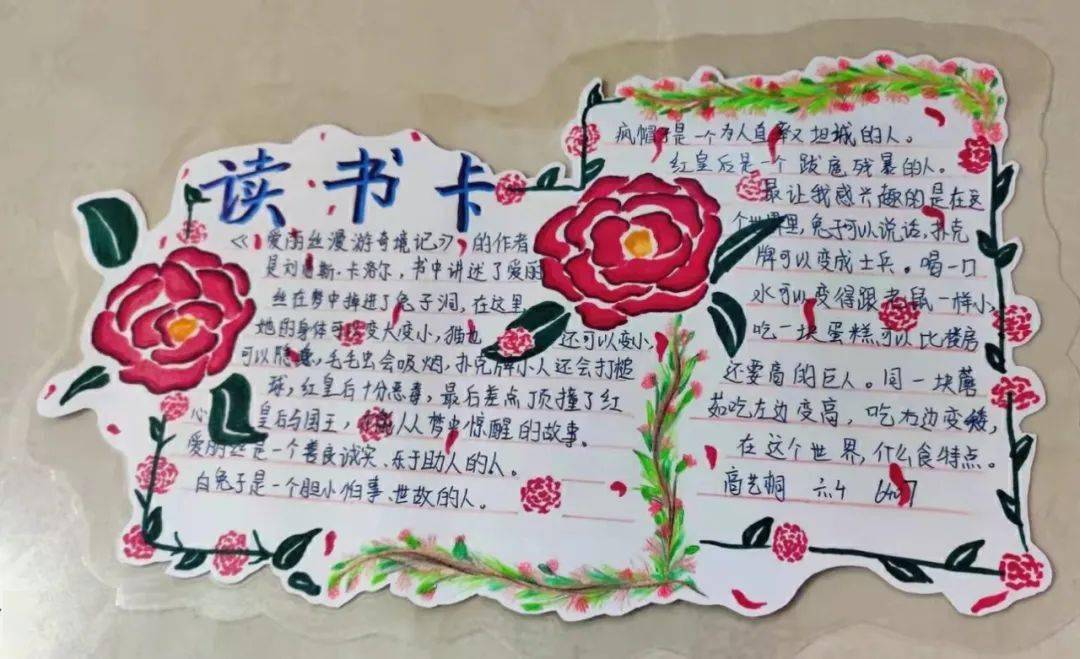 读书卡
《爱丽丝漫游奇境记》的作者
是刘易斯·卡洛尔,书中讲述了爱丽
丝在梦中掉进了兔子洞,在这里
她的身体可以变大变小,猫也
可以隐,毛毛虫会吸烟,扑克牌小人还会打槌
球,红皇后十分恶毒,最后差点顶撞了红
心皇后与国王,人从梦中惊醒的故事。
爱丽丝是一个善良诚实、乐于助人的人。
白兔子是一个胆小怕事、世故的人。
疯帽子是一个为人直率又坦诚的人。
红皇后是一个跋扈残暴的人。
最让我感兴趣的是在这
个世界里,兔子可以说话,扑克
牌可以变成士兵。喝一口
水可以变得跟老鼠一样小,
还可以变小,吃一块蛋糕可以比楼房
还要高的巨人。同一块蘑
菇吃左边变高,吃右边变矮,
在这个世界,什么食特点。
高艺桐 六4